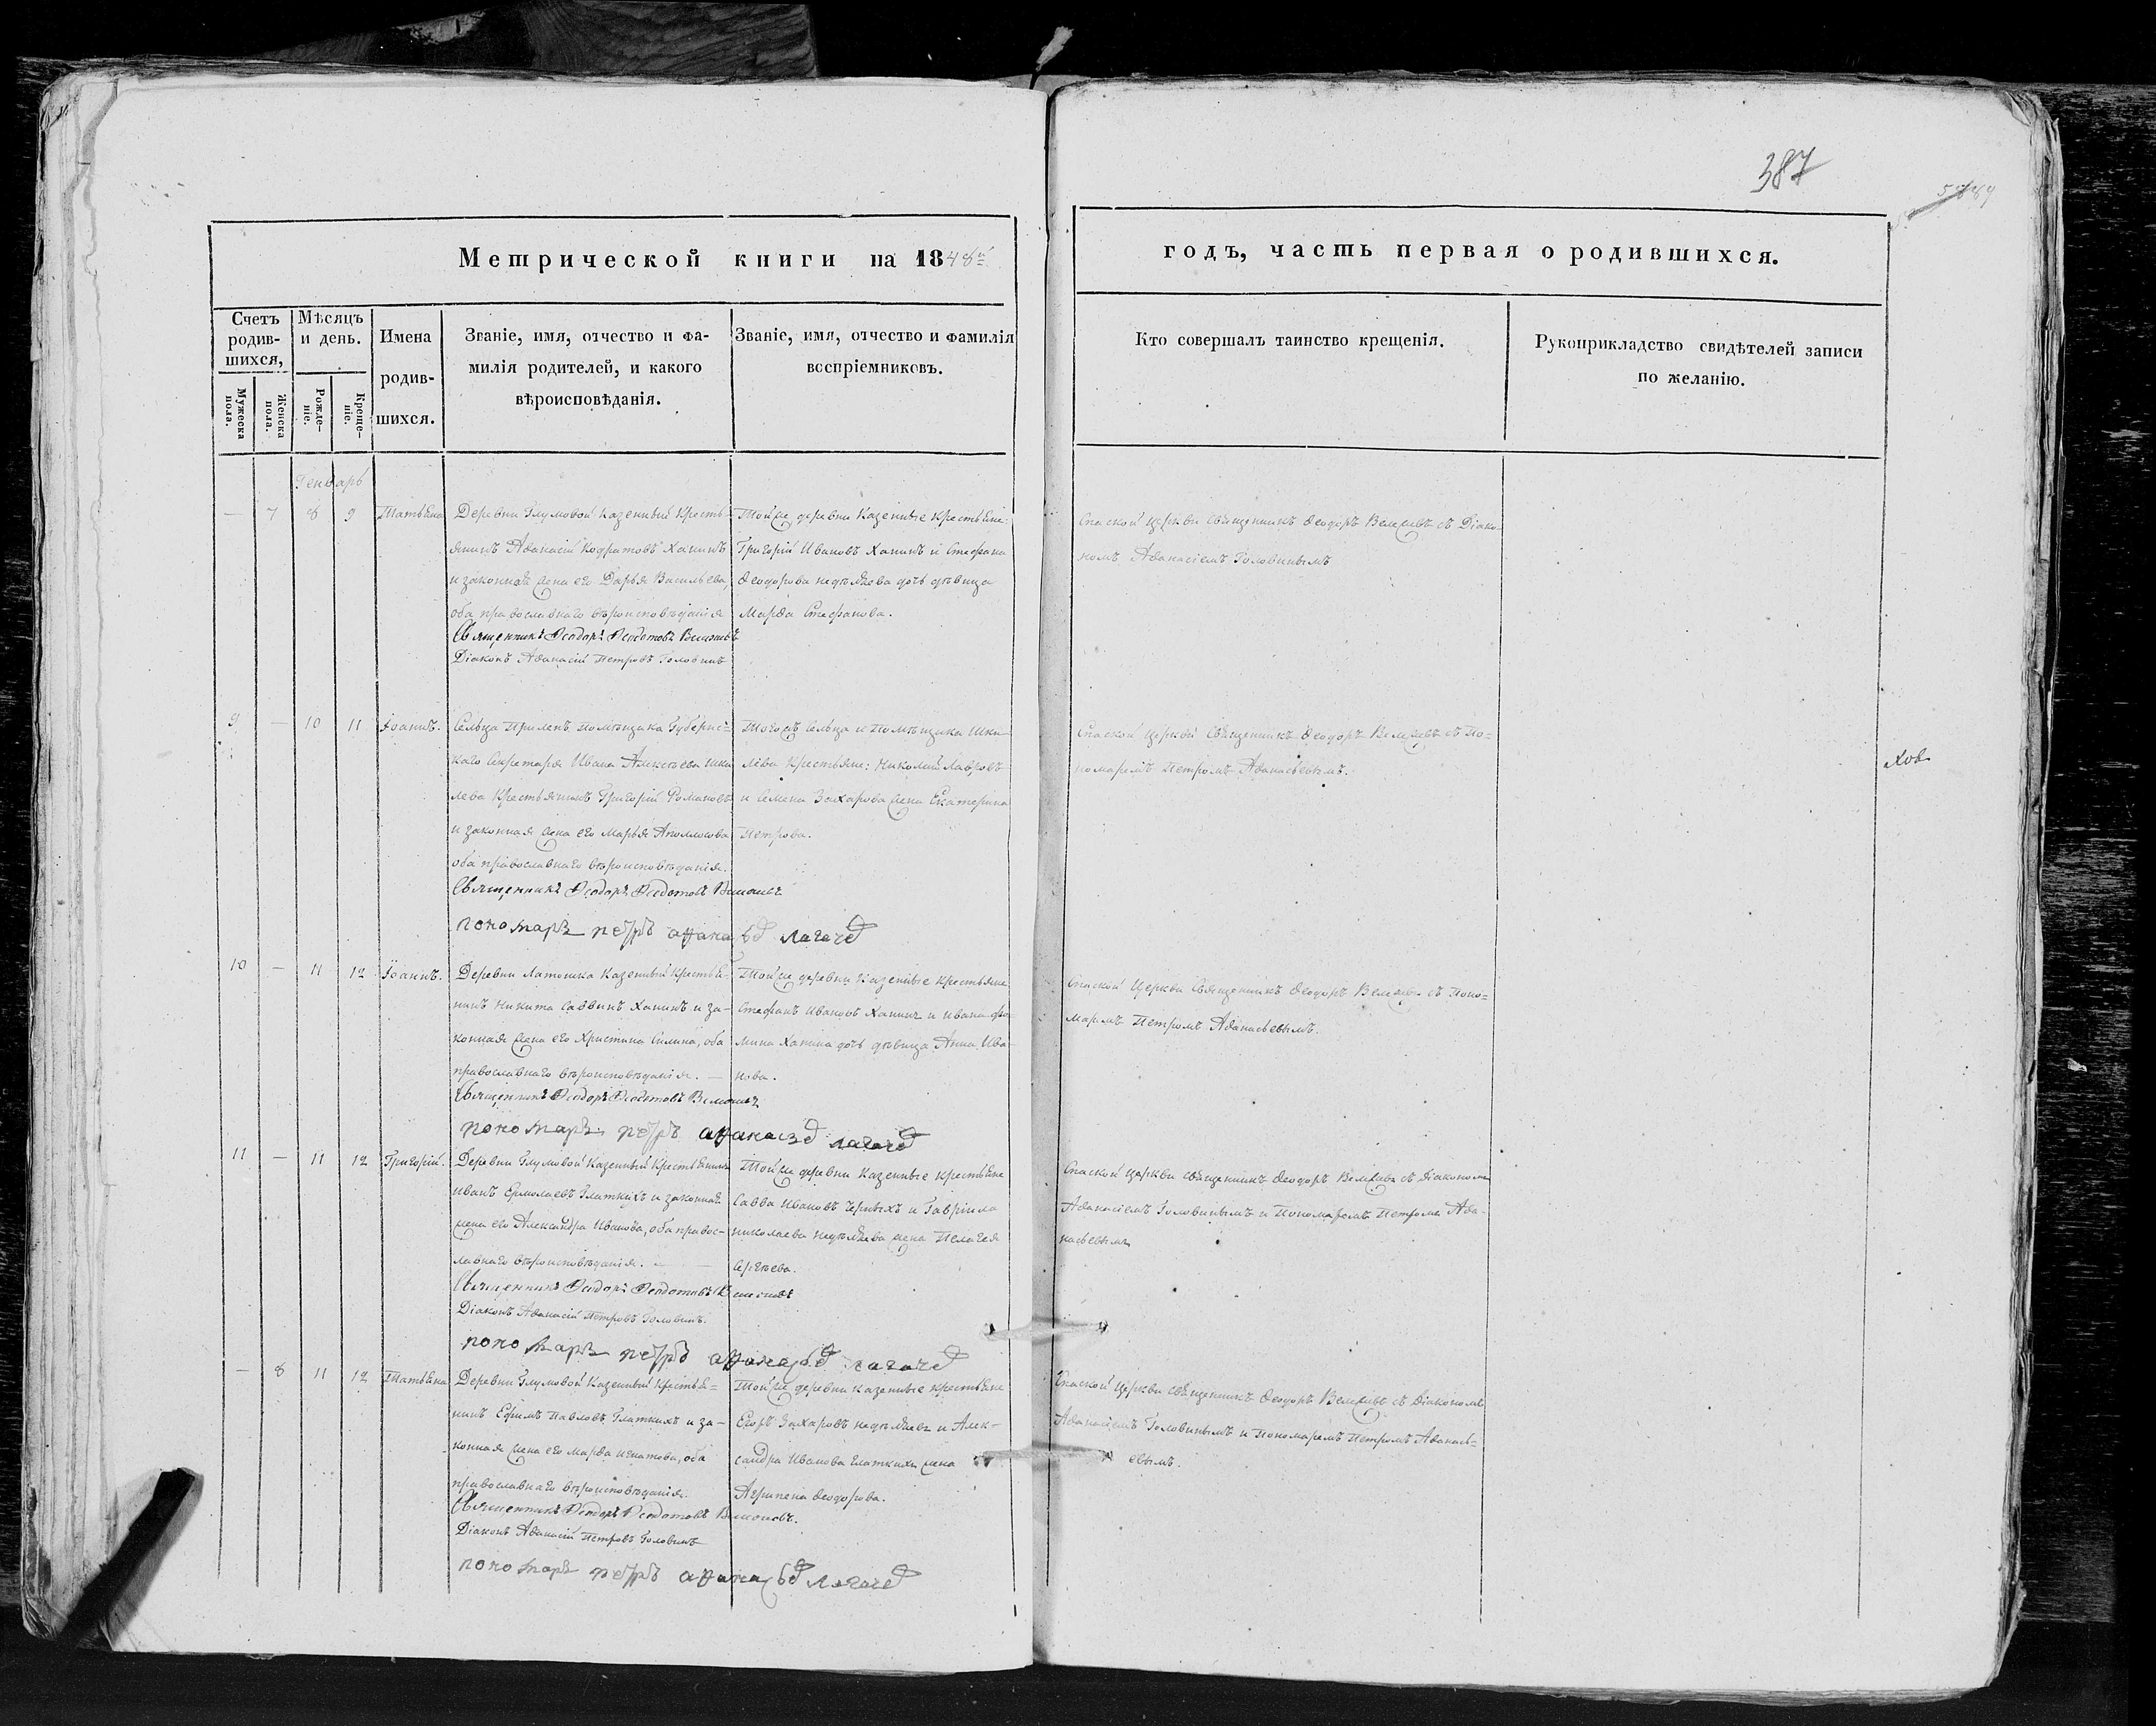 387
Метрической книги на 1848й
годъ, часть первая о родившихся.
Счетъ родив-
шихся,
Мѣсяцъ
и день.
Имена
родив-
шихся.
Званіе, имя, отчество и фа-
милія родителей, и какого
вѣроисповѣданія.
Званіе, имя, отчество и фамилія
воспріемниковъ.
Мужеска
пола.
Женска
пола.
Рожде-
ніе.
Креще-
ніе.
Кто совершалъ таинство крещенія.
Рукоприкладство свидѣтелей записи
по желанію.
Генварь
— 7 8 9 Татьяна
Деревни Глумовой казенный кресть-
янинъ Аѳанасій Кодратовъ Ханинъ
и законная жена его Дарья Васильева,
оба православнаго вѣроисповѣданія
Священникъ Ѳеодоръ Ѳеодотовъ
Діаконъ Аѳанасій Петровъ Головинъ
Тойже деревни казенные крестьяне:
Григорій Ивановъ Ханинъ и Стефана
Ѳеодорова дочь дѣвица
Марѳа Стефанова.
Спаской церкви священникъ Ѳеодоръ съ Діако-
номъ Аѳанасіемъ Головинымъ
9 — 10 11 Іоаннъ.
Сельца помѣщика Губернс-
каго Секретаря Ивана Алексѣева Шки-
лева крестьянинъ Григорій Романовъ
и законная жена его Марья
оба православнаго вѣроисповѣданія.
Священникъ Ѳеодоръ Ѳеодотовъ
пономарь петръ
Тогожъ сельца и помѣщика Шки-
лева крестьяне: Николай Лавровъ
и Семена Захарова жена Екатерина
Петрова.
Спаской церкви священникъ Ѳеодоръ съ По-
номаремъ Петромъ Аѳанасьевымъ.
хов
10 — 11 12 Іоаннъ.
Деревни казенный крестья-
нинъ Никита Саввинъ Ханинъ и за-
конная жена его Христина, оба
православнаго вѣроисповѣданія. —
Священникъ Ѳеодоръ Ѳеодотовъ
пономарь петръ
Тойже деревни казенные крестьяне
Стефанъ Ивановъ Ханинъ и Ивана Фо-
мина Ханина дочь дѣвица Анна Ива-
нова.
Спаской Церкви Священникъ Ѳеодоръ съ Поно-
маремъ Петромъ Аѳанасьевымъ.
11 — 11 12 Григорій.
Деревни Глумовой казенный крестьянинъ
Иванъ Ермолаевъ Глаткихъ и законная
жена его Александра Иванова, оба правос-
лавнаго вѣроисповѣданія. —
Священникъ Ѳеодоръ Ѳеодотовъ
Діаконъ Аѳанасій Петровъ Головинъ.
пономарь петръ
Тойже деревни казенные крестьяне
Савва Ивановъ Черныхъ и Гавріила
Николаева жена Пелагея
Сергѣева.
Спаской церкви священникъ Ѳеодоръ съ Діакономъ
Аѳанасіемъ Головинымъ и Пономаремъ Петромъ Аѳа-
насьевымъ
— 8 11 12 Татьяна
Деревни Глумовой казенный крестья-
нинъ Ефимъ Павловъ Глаткихъ и за-
конная жена его Марѳа Игнатова, оба
православнаго вѣроисповѣданія.
Священникъ Ѳеодоръ Ѳеодотовъ
Діаконъ Аѳанасій Петровъ Головинъ
пономарь петръ
Тойже деревни казенные крестьяне
Егоръ Захаровъ и Алек-
сандра Иванова Глаткихъ жена
Агрипена Ѳеодорова.
Спаской церкви священникъ Ѳеодоръ съ Діакономъ
Аѳанасіемъ Головинымъ и Пономаремъ Петромъ Аѳанась-
евымъ.